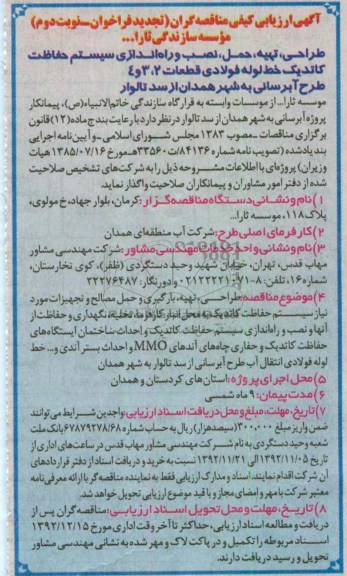 آگهی ارزیابی کیفی مناقصه گران (تجدید فراخوان-نوبت دوم)
مؤسسه سازندگی ثارا...
طراحی، تهیه، حمل، نصب و راه اندازی سیستم حفاظت
کاتدیک خط لوله فولادی قطعات ۲،۳ و ٤
طرح آبرسانی به شهر همدان از سد تالوار
موسسه ثارا... از موسسات وابسته به قرارگاه سازندگی خاتم الانبیاء(ص)، پیمانکار
پروژه آبرسانی به شهر همدان از سد تالوار در نظر دارد با رعایت بند ج ماده (۱۲) قانون
برگزاری مناقصات - مصوب ۱۳۸۳ مجلس شورای اسلامی - و آیین نامه اجرایی
بند یاد شده (تصویب نامه شماره ۸۴۱۳۶/ت۳۳۵۶۰هـ مورخ ۱۳۸۵/۰۷/۱۶ هیات
وزیران) پروژه ای با اطلاعات مشروحه ذیل را به شرکت های تشخیص صلاحیت
شده از دفتر امور مشاوران و پیمانکاران صلاحیت واگذار نماید.
۱) نام و نشانی دستگاه مناقصه گزار: کرمان، بلوار جهاد، خ مولوی،
پلاک ۱۱۸، موسسه ثارا...
۲) کارفرمای اصلی طرح: شرکت آب منطقه ای همدان
۳) نام و نشانی واحد خدمات مهندسی مشاور: شرکت مهندسی مشاور
مهاب قدس، تهران، خیابان شهید وحید دستگردی (ظفر)، کوی تخارستان،
شماره ۱۶، تلفن: ۸-۰۲۱۲۲۲۲۱۰۷۱ و دورنگار: ۲۲۲۷۶۴۸۷
۴) موضوع مناقصه: طراحی، تهیه، بارگیری و حمل مصالح و تجهیزات مورد
نیاز سیستم حفاظت کاتدیک به محل انبار کارفرما، تخلیه، نگهداری و حفاظت از
آنها و نصب و راه اندازی سیستم حفاظت کاتدیک و احداث ساختمان ایستگاه های
حفاظت کاتدیک و حفاری چاه های آندهای MMO و احداث بستر آندی و... خط
لوله فولادی انتقال آب طرح آبرسانی از سد تالوار به شهر همدان
۵) محل اجرای پروژه: استان های کردستان و همدان
۶) مدت پیمان: ۹ ماه شمسی
۷) تاریخ، مهلت، مبلغ و محل دریافت اسناد ارزیابی: واجدین شرایط می توانند
ضمن واریز مبلغ ۳۰۰،۰۰۰ (سیصد هزار) ریال به حساب شماره ۶۷۸۷۹۲۷۸/۶۸ بانک ملت
شعبه وحید دستگردی به نام شرکت مهندسی مشاور مهاب قدس در ساعت های اداری از
تاریخ ۱۳۹۲/۱۱/۰۵ الی ۱۳۹۲/۱۱/۲۱ نسبت به خرید و دریافت اسناد از دفتر قراردادهای
آن شرکت اقدام نمایند. اسناد و مدارک ارزیابی فقط به نماینده مناقصه گر با ارائه معرفی نامه
معتبر شرکت با مهر و امضای مجاز و با قید موضوع ارزیابی تحویل خواهد شد.
۸) تاریخ، مهلت و محل تحویل اسناد ارزیابی: مناقصه گران پس از
دریافت و مطالعه اسناد ارزیابی، حداکثر تا آخر وقت اداری مورخ ۱۳۹۲/۱۲/۱۵
اسناد مربوطه را تکمیل و در پاکت لاک و مهر شده به نشانی مهندسی مشاور
تحویل و رسید دریافت دارند.